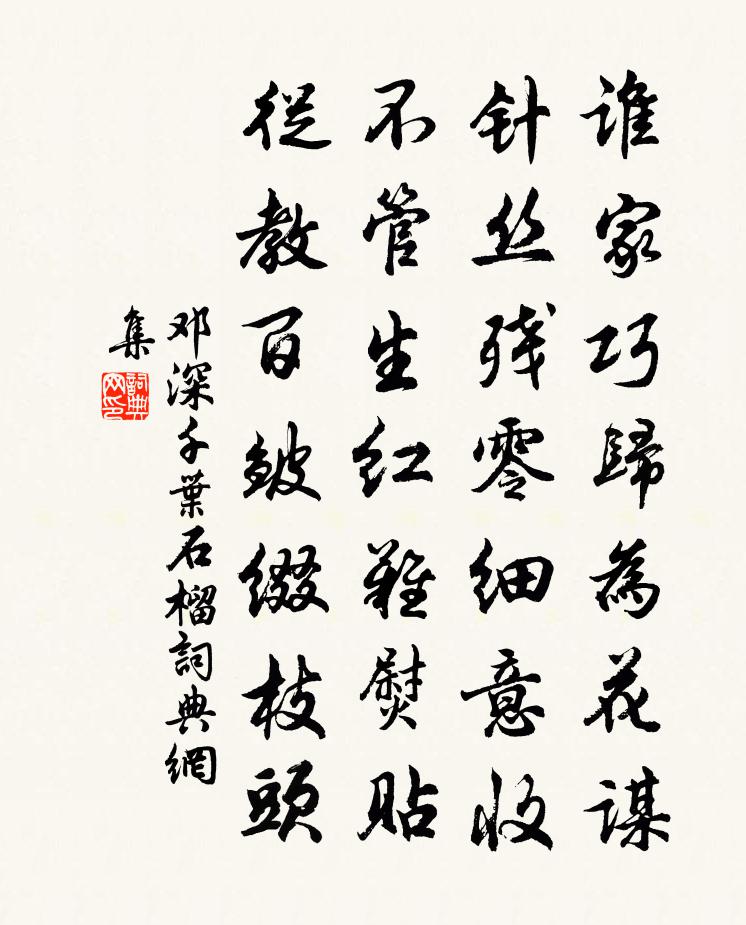 誰家巧歸為花謀
针丝残零细意收
不管生红難熨貼
從教百皱缀枝頭
邓深千葉石榴詞典網
集
詞典網印